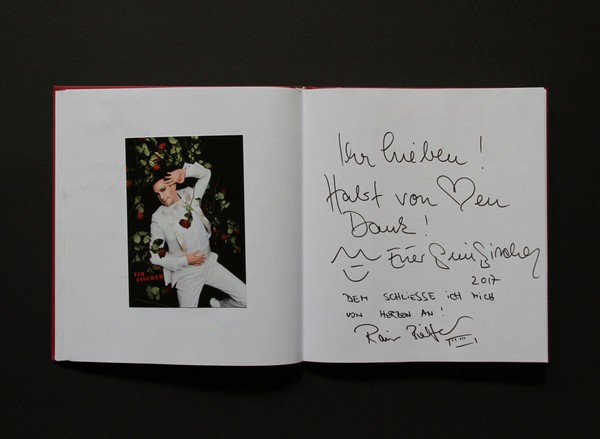 TIM
FISCHER
Ihr Lieben!
Habt von ♡en
Dank!
Euer Tim Fischer
2017
DEM SCHLIESSE ICH MICH
VON HERZEN AN!